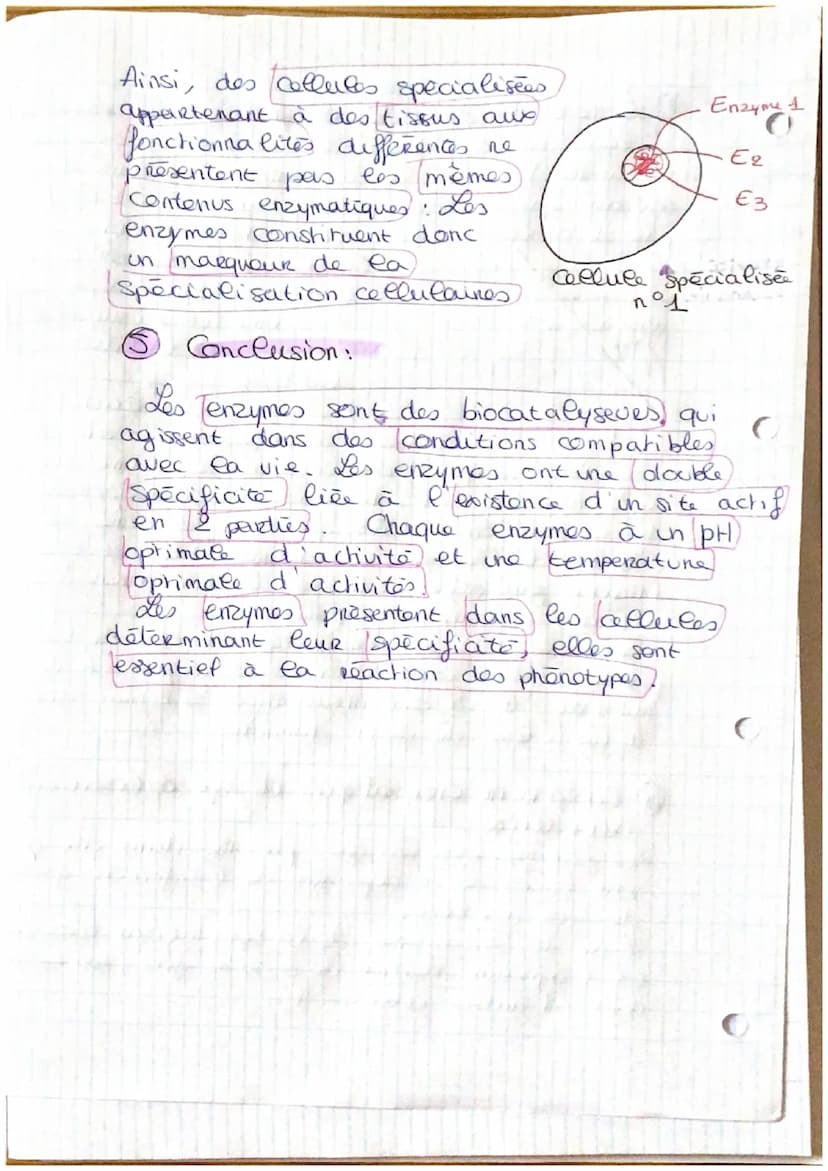 Ainsi, des cellules spécialisées
appartenant à des tissus aux
fonctionnalités différences ne
présentent pas les mêmes
contenus enzymatiques : Les
enzymes constituent donc
un marqueur de la
spécialisation cellulaires
Enzyme 1
E2
E3
cellule spécialisée
n°1
5 Conclusion :
Les enzymes sont des biocatalyseurs qui
agissent dans des conditions compatibles
avec la vie. Les enzymes ont une double
spécificité liée à l'existence d'un site actif
en 2 parties. Chaque enzymes à un pH
optimale d'activité et une température
optimale d'activités.
Les enzymes présentent dans les cellules
déterminant leur spécificité, elles sont
essentiel à la réaction des phénotypes.